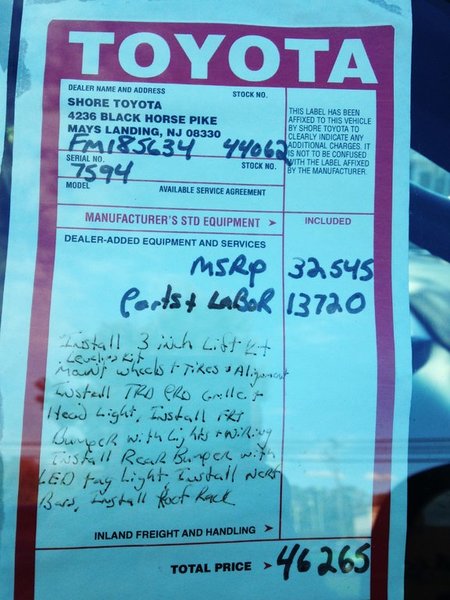 TOYOTA
DEALER NAME AND ADDRESS STOCK NO.
SHORE TOYOTA
4236 BLACK HORSE PIKE
MAYS LANDING, NJ 08330
FM185634 44062
SERIAL NO. STOCK NO.
7594
MODEL AVAILABLE SERVICE AGREEMENT
THIS LABEL HAS BEEN
AFFIXED TO THIS VEHICLE
BY SHORE TOYOTA TO
CLEARLY INDICATE ANY
ADDITIONAL CHARGES. IT
IS NOT TO BE CONFUSED
WITH THE LABEL AFFIXED
BY THE MANUFACTURER
MANUFACTURER'S STD EQUIPMENT > INCLUDED
DEALER-ADDED EQUIPMENT AND SERVICES
MSRP 32545
Parts + LaBOR 13720
Install 3 inch Lift Kit
Leveling Kit
Mount wheels + Tires + Alignment
Install TRD PRO Grille +
Head Light, Install FRT
Bumper with Lights + Wiring
Install Rear Bumper with
LED Fog Light Install Nerf
Bars, Install Roof Rack
INLAND FREIGHT AND HANDLING >
TOTAL PRICE > 46265